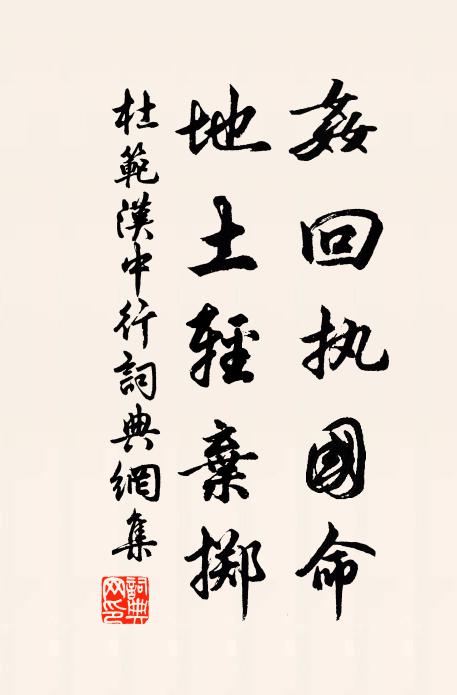 姦回执國命
地土輕棄擲
杜範漢中行詞典網集
詞典網印